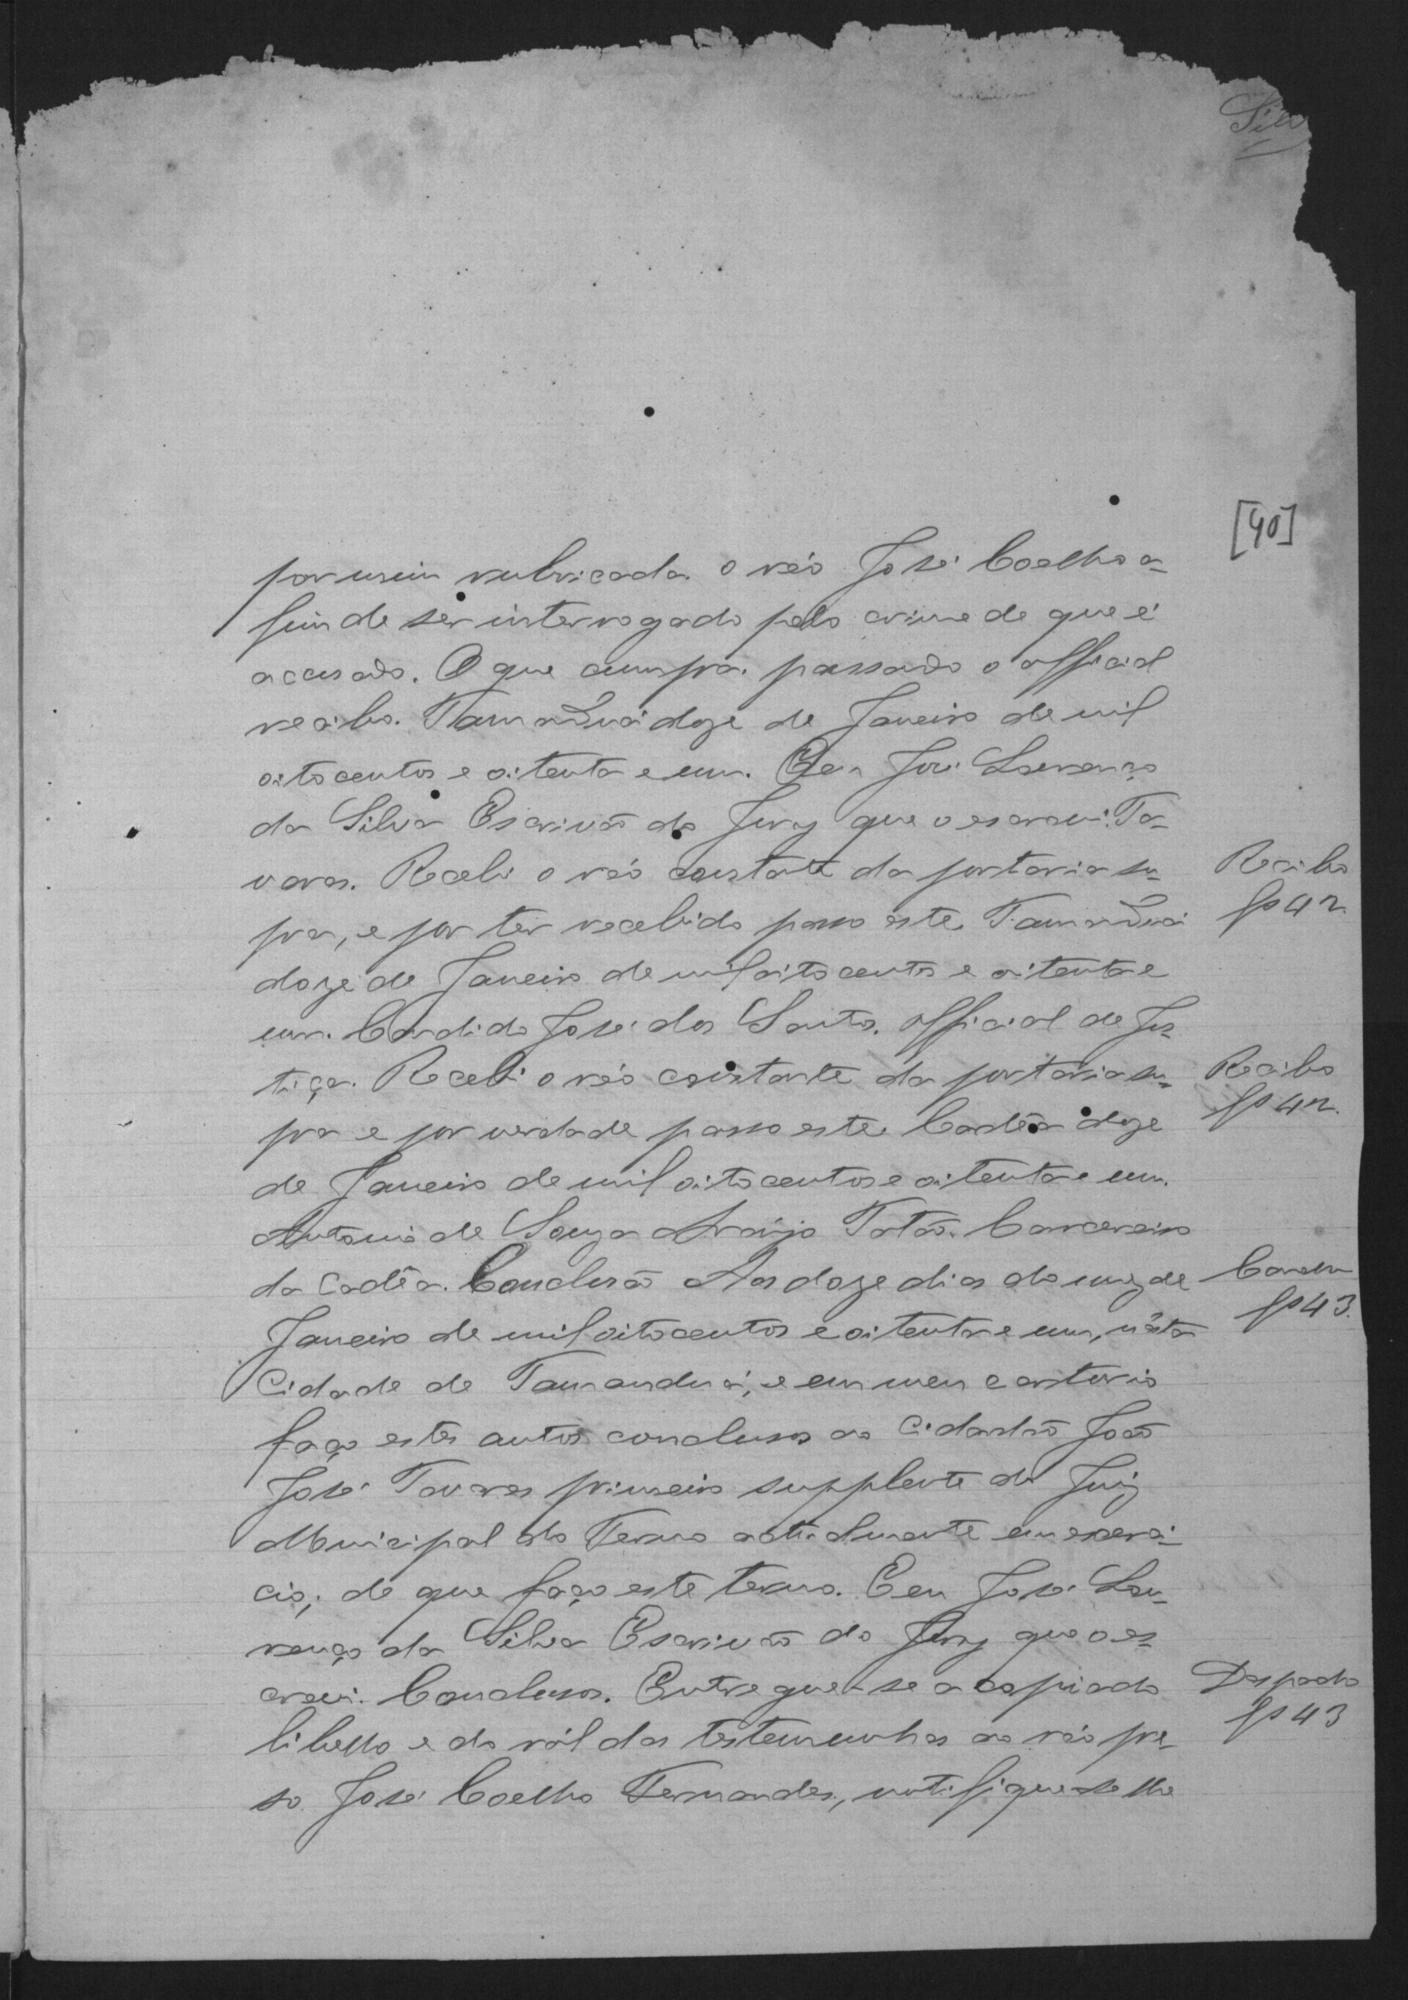 [40]
por mim rubricada o réo José Coelho a=
fim de ser interrogado pelo crime de que é
accusado. O que cumpra. passando o official
recibo. Tamanduá doze de Janeiro de mil
oitocentos e oitenta e um. Eu José Lourenço
da Silva Escrivão do Jury que o escrevi. Ta=
vares. Recebi o réo constante da portaria su=
Recibo
fs 42
pra, e por ter recebido passo este. Tamanduá
doze de Janeiro de mil oitocentos e oitenta e
um. Candido José dos Santos. official de Jus=
tiça. Recebi o réo constante da portaria su=
Recibo
fs 42.
pra e por verdade passo este. Cadêa doze
de Janeiro de mil oitocentos e oitenta e um.
Antonio de Souza Araújo Carcereiro
da Cadêa. Conclusão Aos doze dias do mez de
fs 43.
Janeiro de mil oitocentos e oitenta e um, nésta
Cidade de Tamanduá, e em meu cartorio
faço estes autos conclusos ao Cidadão João
José Tavares primeiro supplente do Juiz
Municipal do Termo actualmente em exerci=
cio; de que faço este termo. Eu José Lou=
renço da Silva Escrivão do Jury que o es=
crevi. Conclusos. Entregue-se a copia do
Despacho
fs 43
libello e do ról das testemunhas ao réo pre=
so José Coelho Fernandes, notifique-se lhe